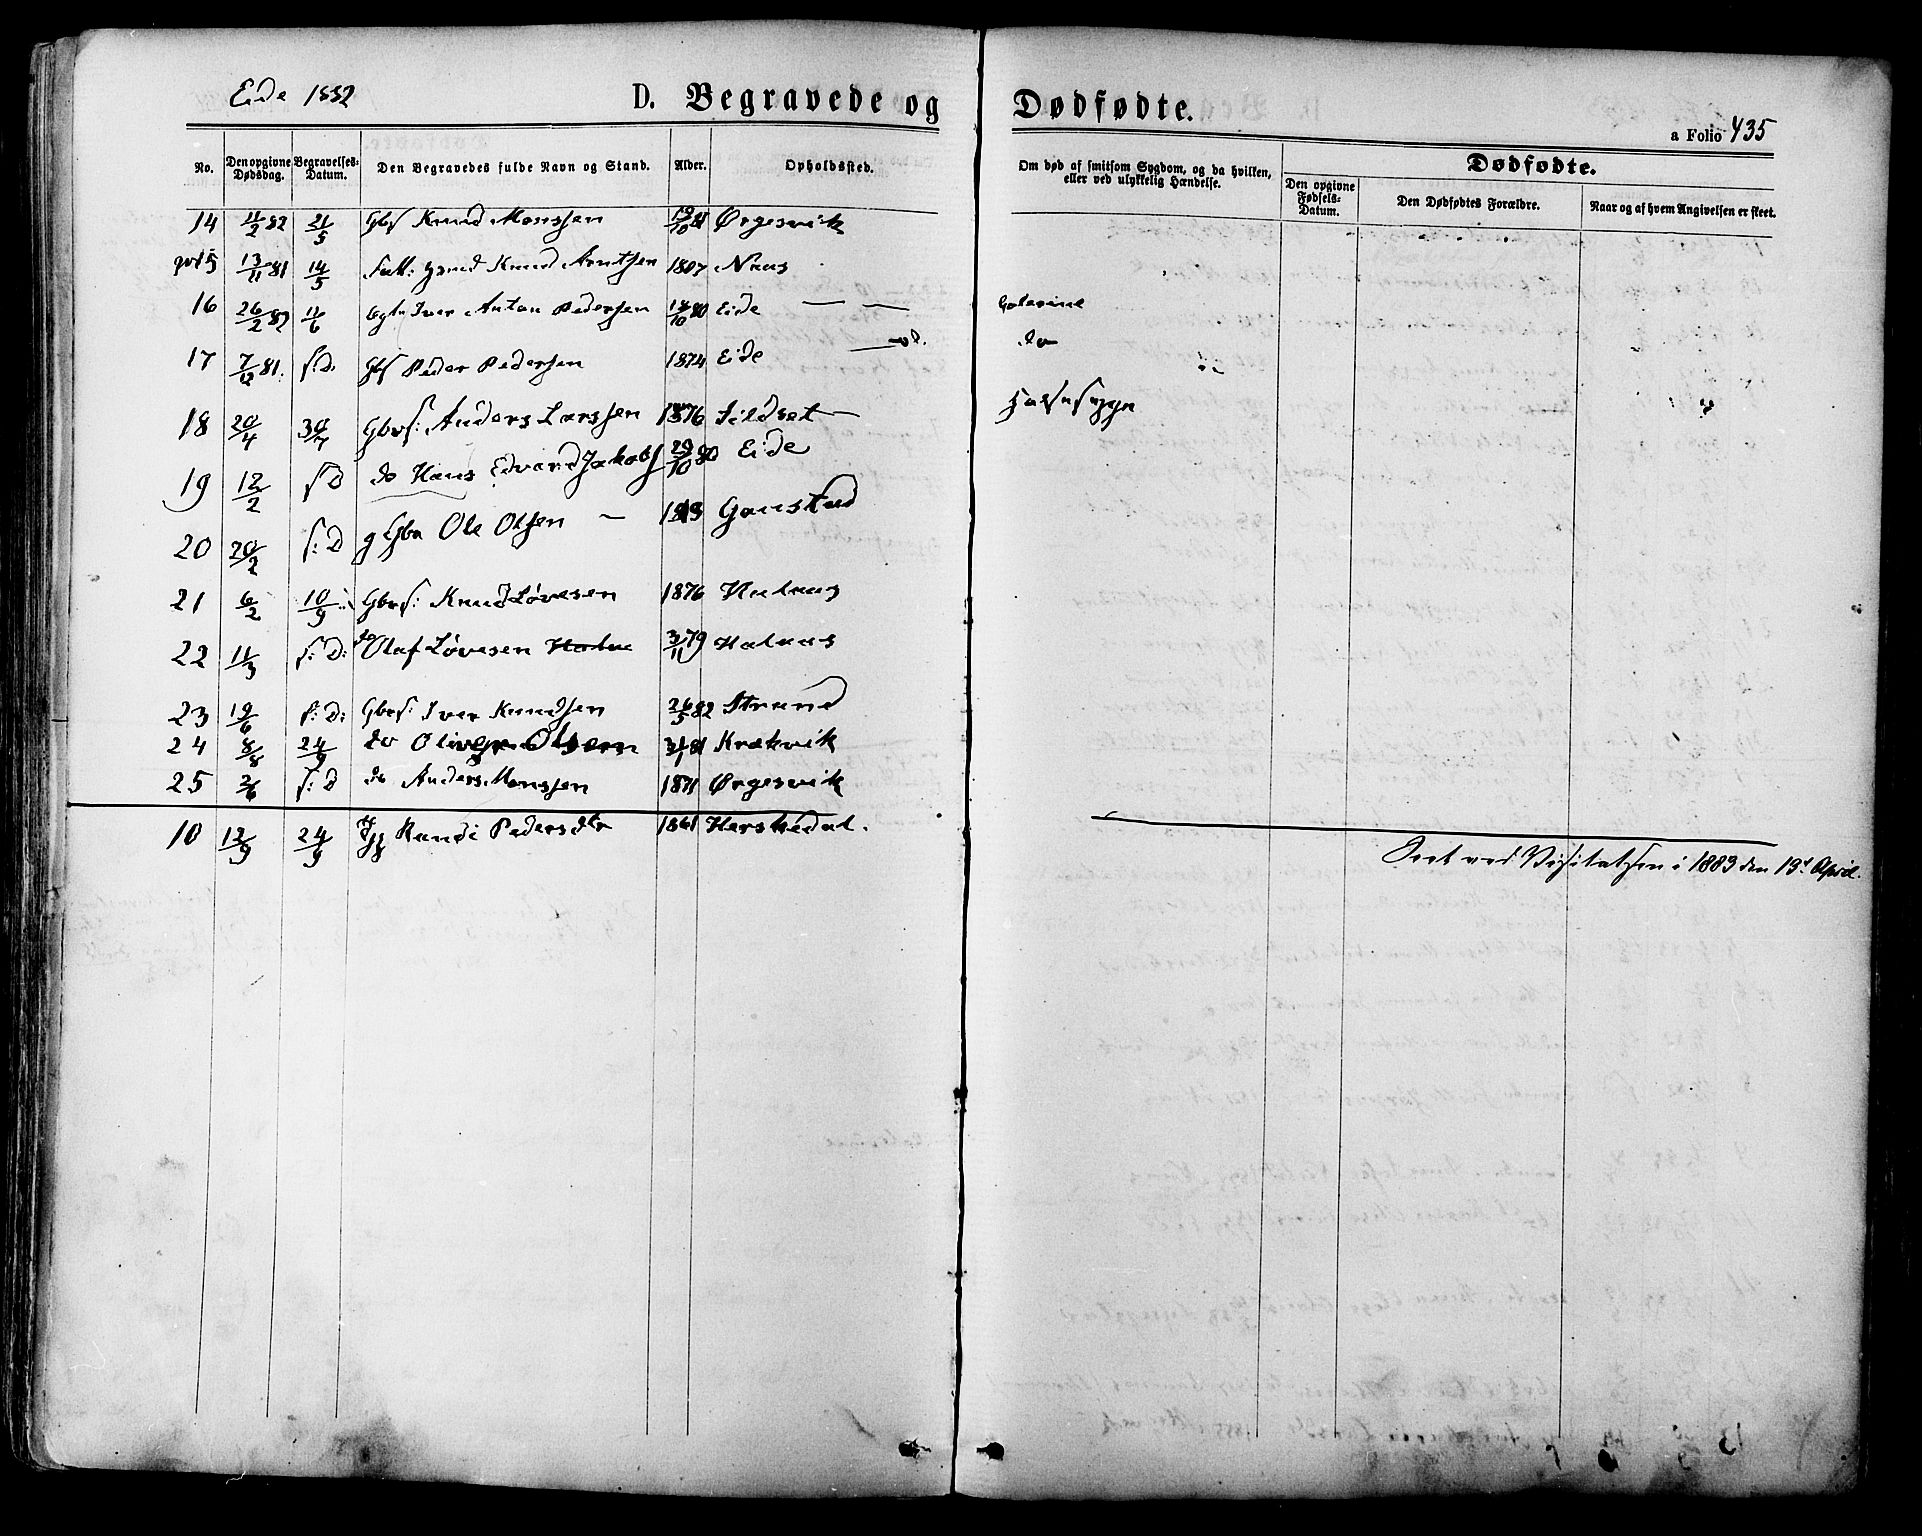 Eide 1882 D. Begravede og Dødfødte.
a Folio 435
No. Den opgivne Dødsdag. Begravelses-Datum. Den Begravedes fulde Navn og Stand. Alder. Opholdssted. Om død af smitsom Sygdom, og da hvilken, eller ved ulykkelig Hændelse. Dødfødte.
Den opgivne Fødsels-Datum. Den Dødfødtes Forældre. Naar og af hvem Angivelsen er skeet.
14 11/2 82 21/5 Gbs Knud Monssen Ørgesvik
15 13/11 81 14/5 Knud Arntsen 1807 Naas
16 26/2 82 11/6 Iver Anton Pedersen 80 Eide — —
17 7/12 81. s.D. Gbs Peder Pedersen 1874 Eide — do
18 20/4 30/7 Gbrs: Anders Larssen 1876 Sildset — Halssyge
19 12/2 s D do Hans Edvard Jakobs 29/10 80 Eide
20 20/2 s: D Ole Olsen — Gaustad
21 6/2 10/9 Gbrs: Knud Løvesen 1876 Halaas
22 11/3 s: D: do Olaf Løvesen 3/11 79 Halaas
23 19/6 s: D: Gbrs: Iver Knudsen 26/5 82 Strand
24 8/8 24/9 do Oliver Olsen 81 Krakvik
25 2/6 s: D do Anders Monssen 1871 Ørgesvik
10 12/9 24/9 Randi Pedersdtr 1861 Herskedal.
Seet ved Visitatsen i 1883 den 13d April.